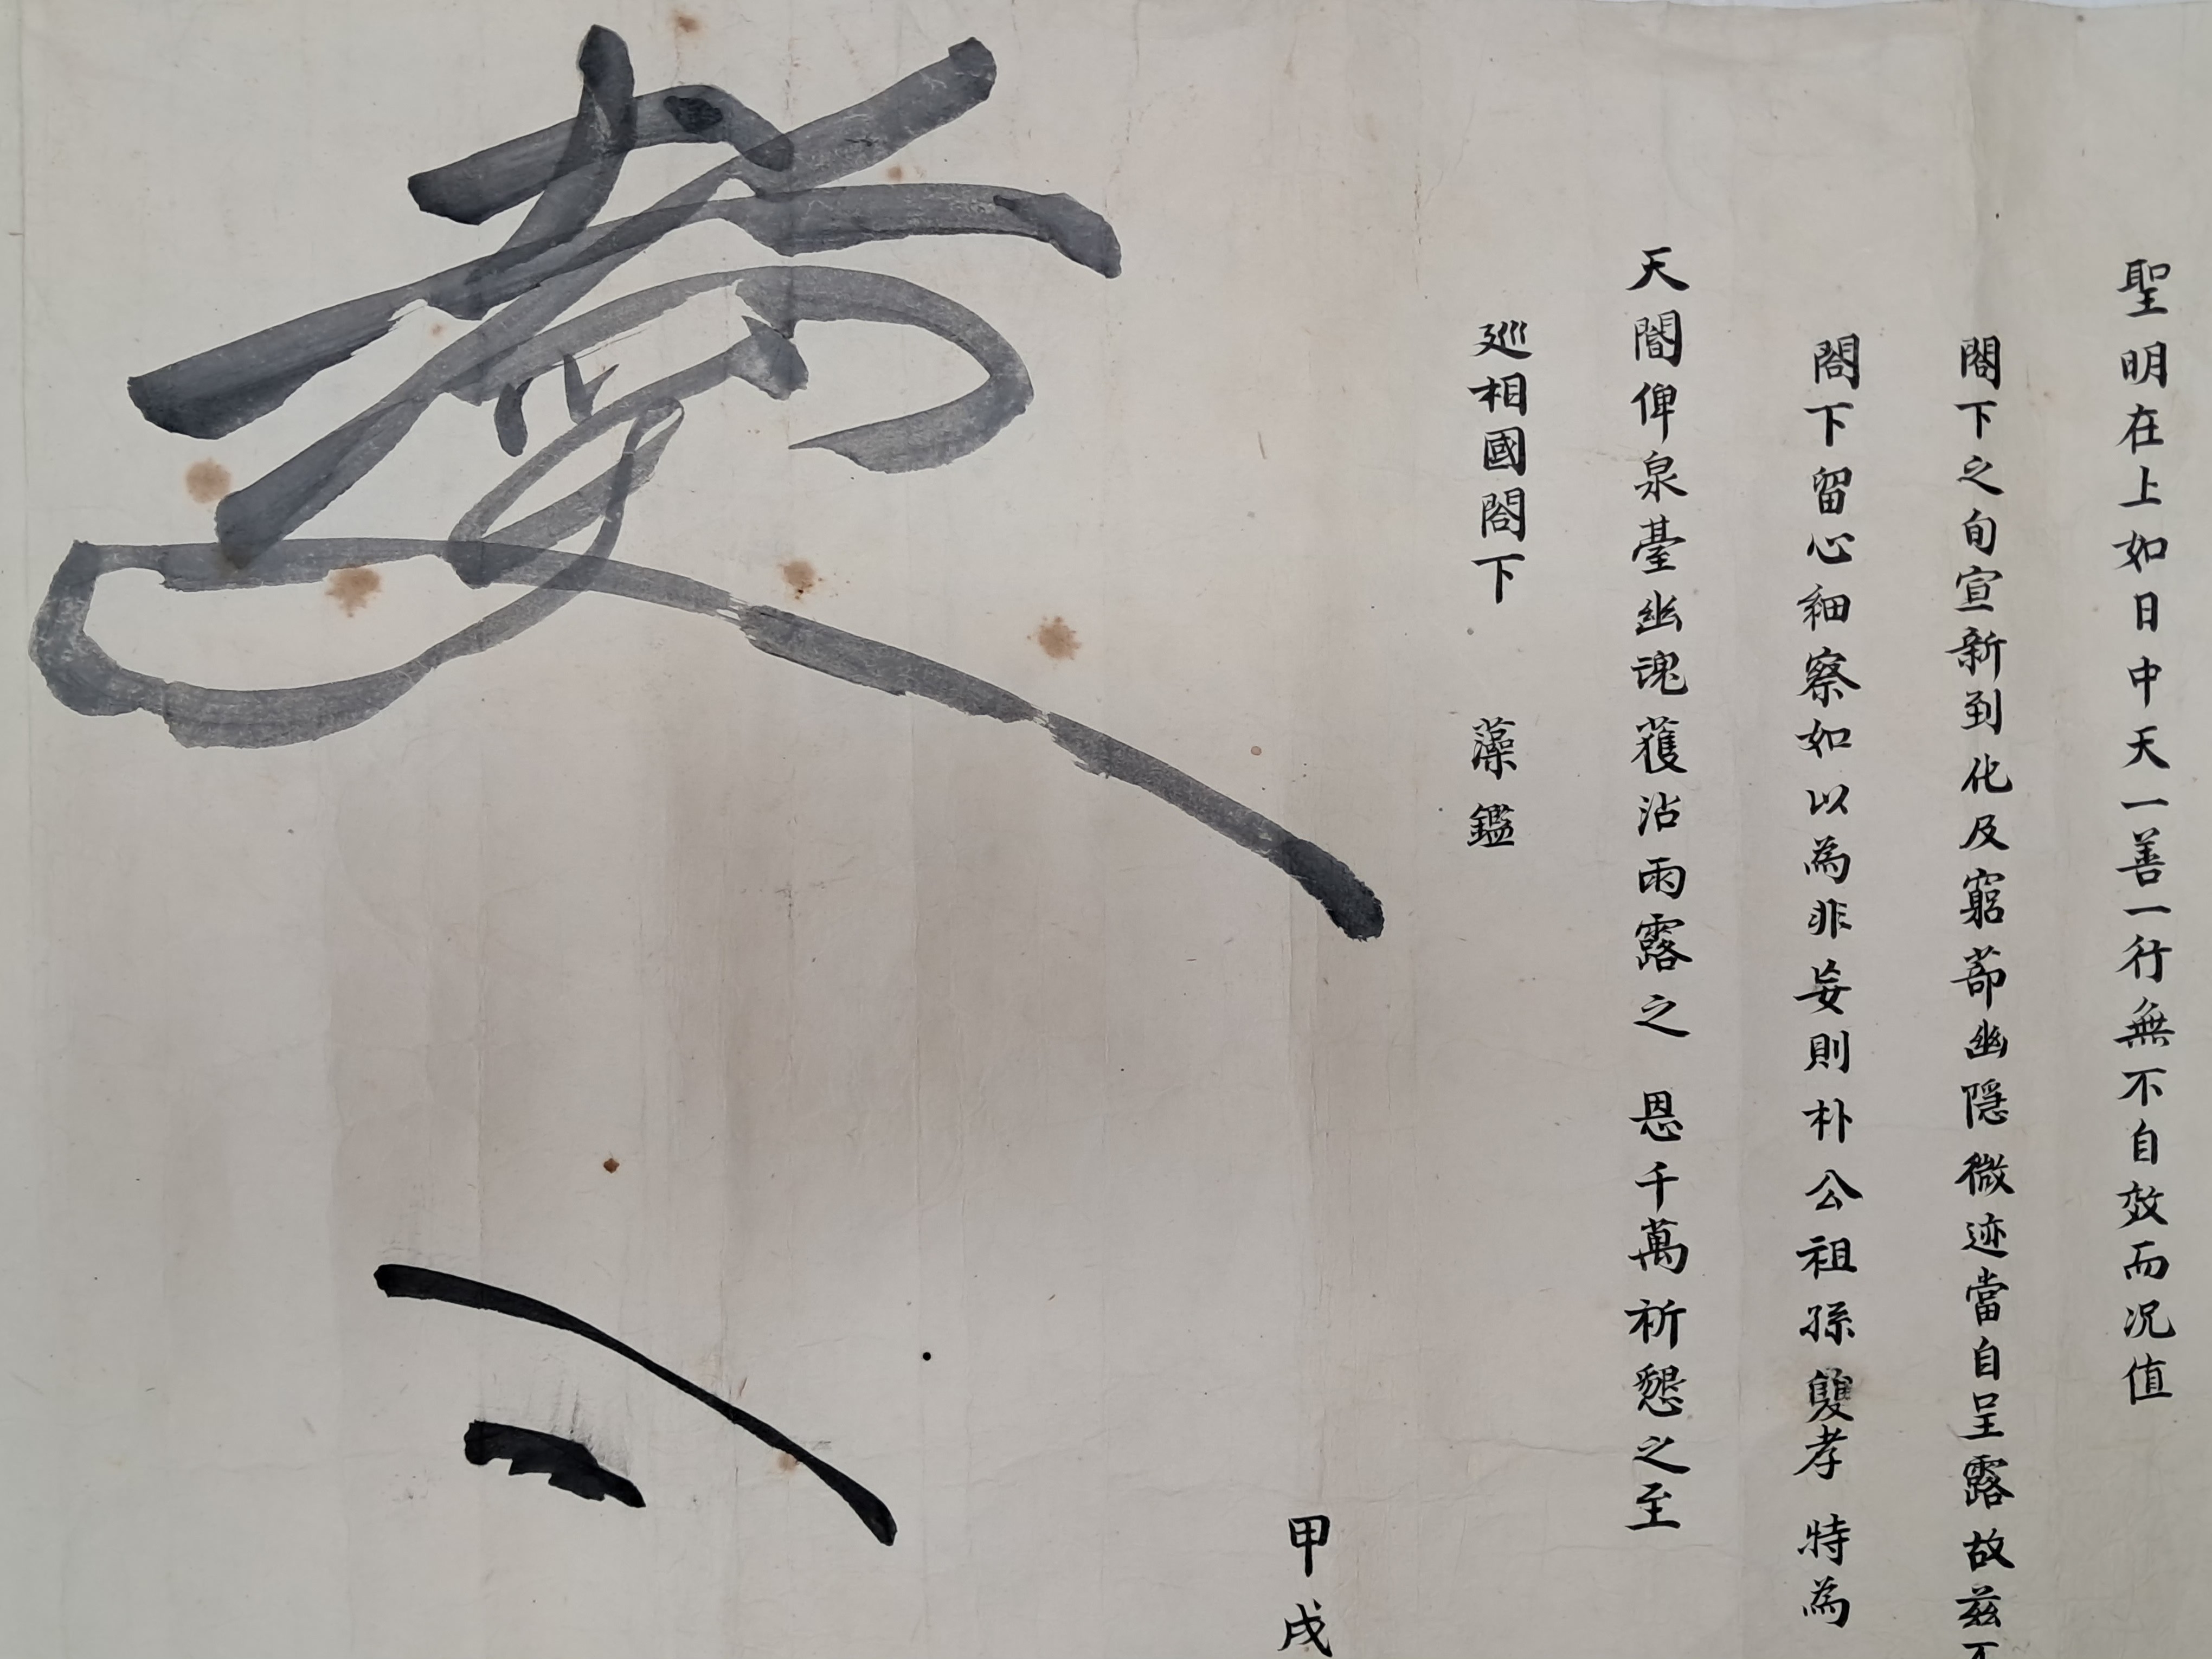 聖明在上如日中天一善一行無不自效而况值
閤下之旬宣新到化及窮蔀幽隱微迹當自呈露故兹不
閤下留心細察如以為非妄則朴公祖孫雙孝特為
天閽俾泉臺幽魂獲沾雨露之 恩千萬祈懇之至
廵相國閤下 藻鑑
甲戌